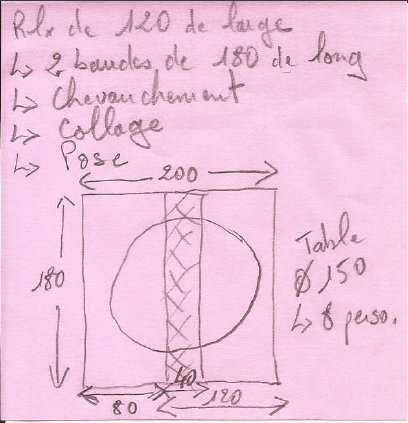 Rlx de 120 de large
↳ 2 bandes de 180 de long
↳ Chevauchement
↳ Collage
↳ Pose
200
180
Table
Ø 150
↳ 8 perso.
40
80
120